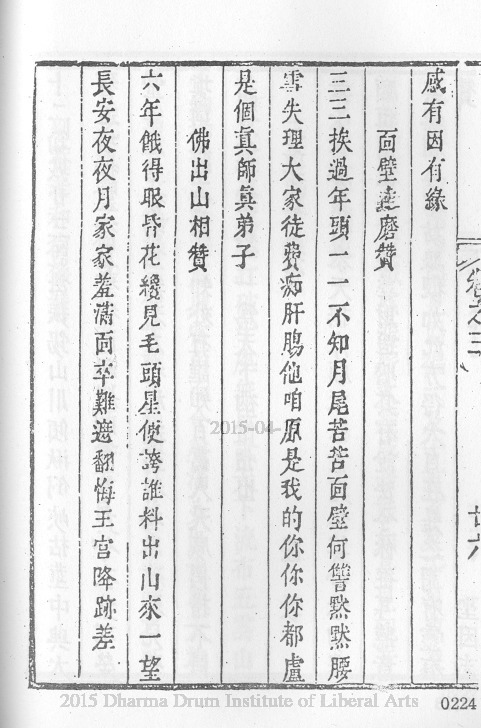 感有因有緣
面壁達磨贊
三三挨過年頭一一不知月尾苦苦面壁何讐黙黙腰
雪失理大家徒費痴肝腸他咱原是我的你你你都盧
是個真師真弟子
佛出山相贊
六年餓得眼昏花纔見毛頭星便誇誰料出山來一望
長安夜夜月家家羞滿面卒難遮翻悔王宮降跡差
卷之三
廿六
2015-04-
2015 Dharma Drum Institute of Liberal Arts
0224